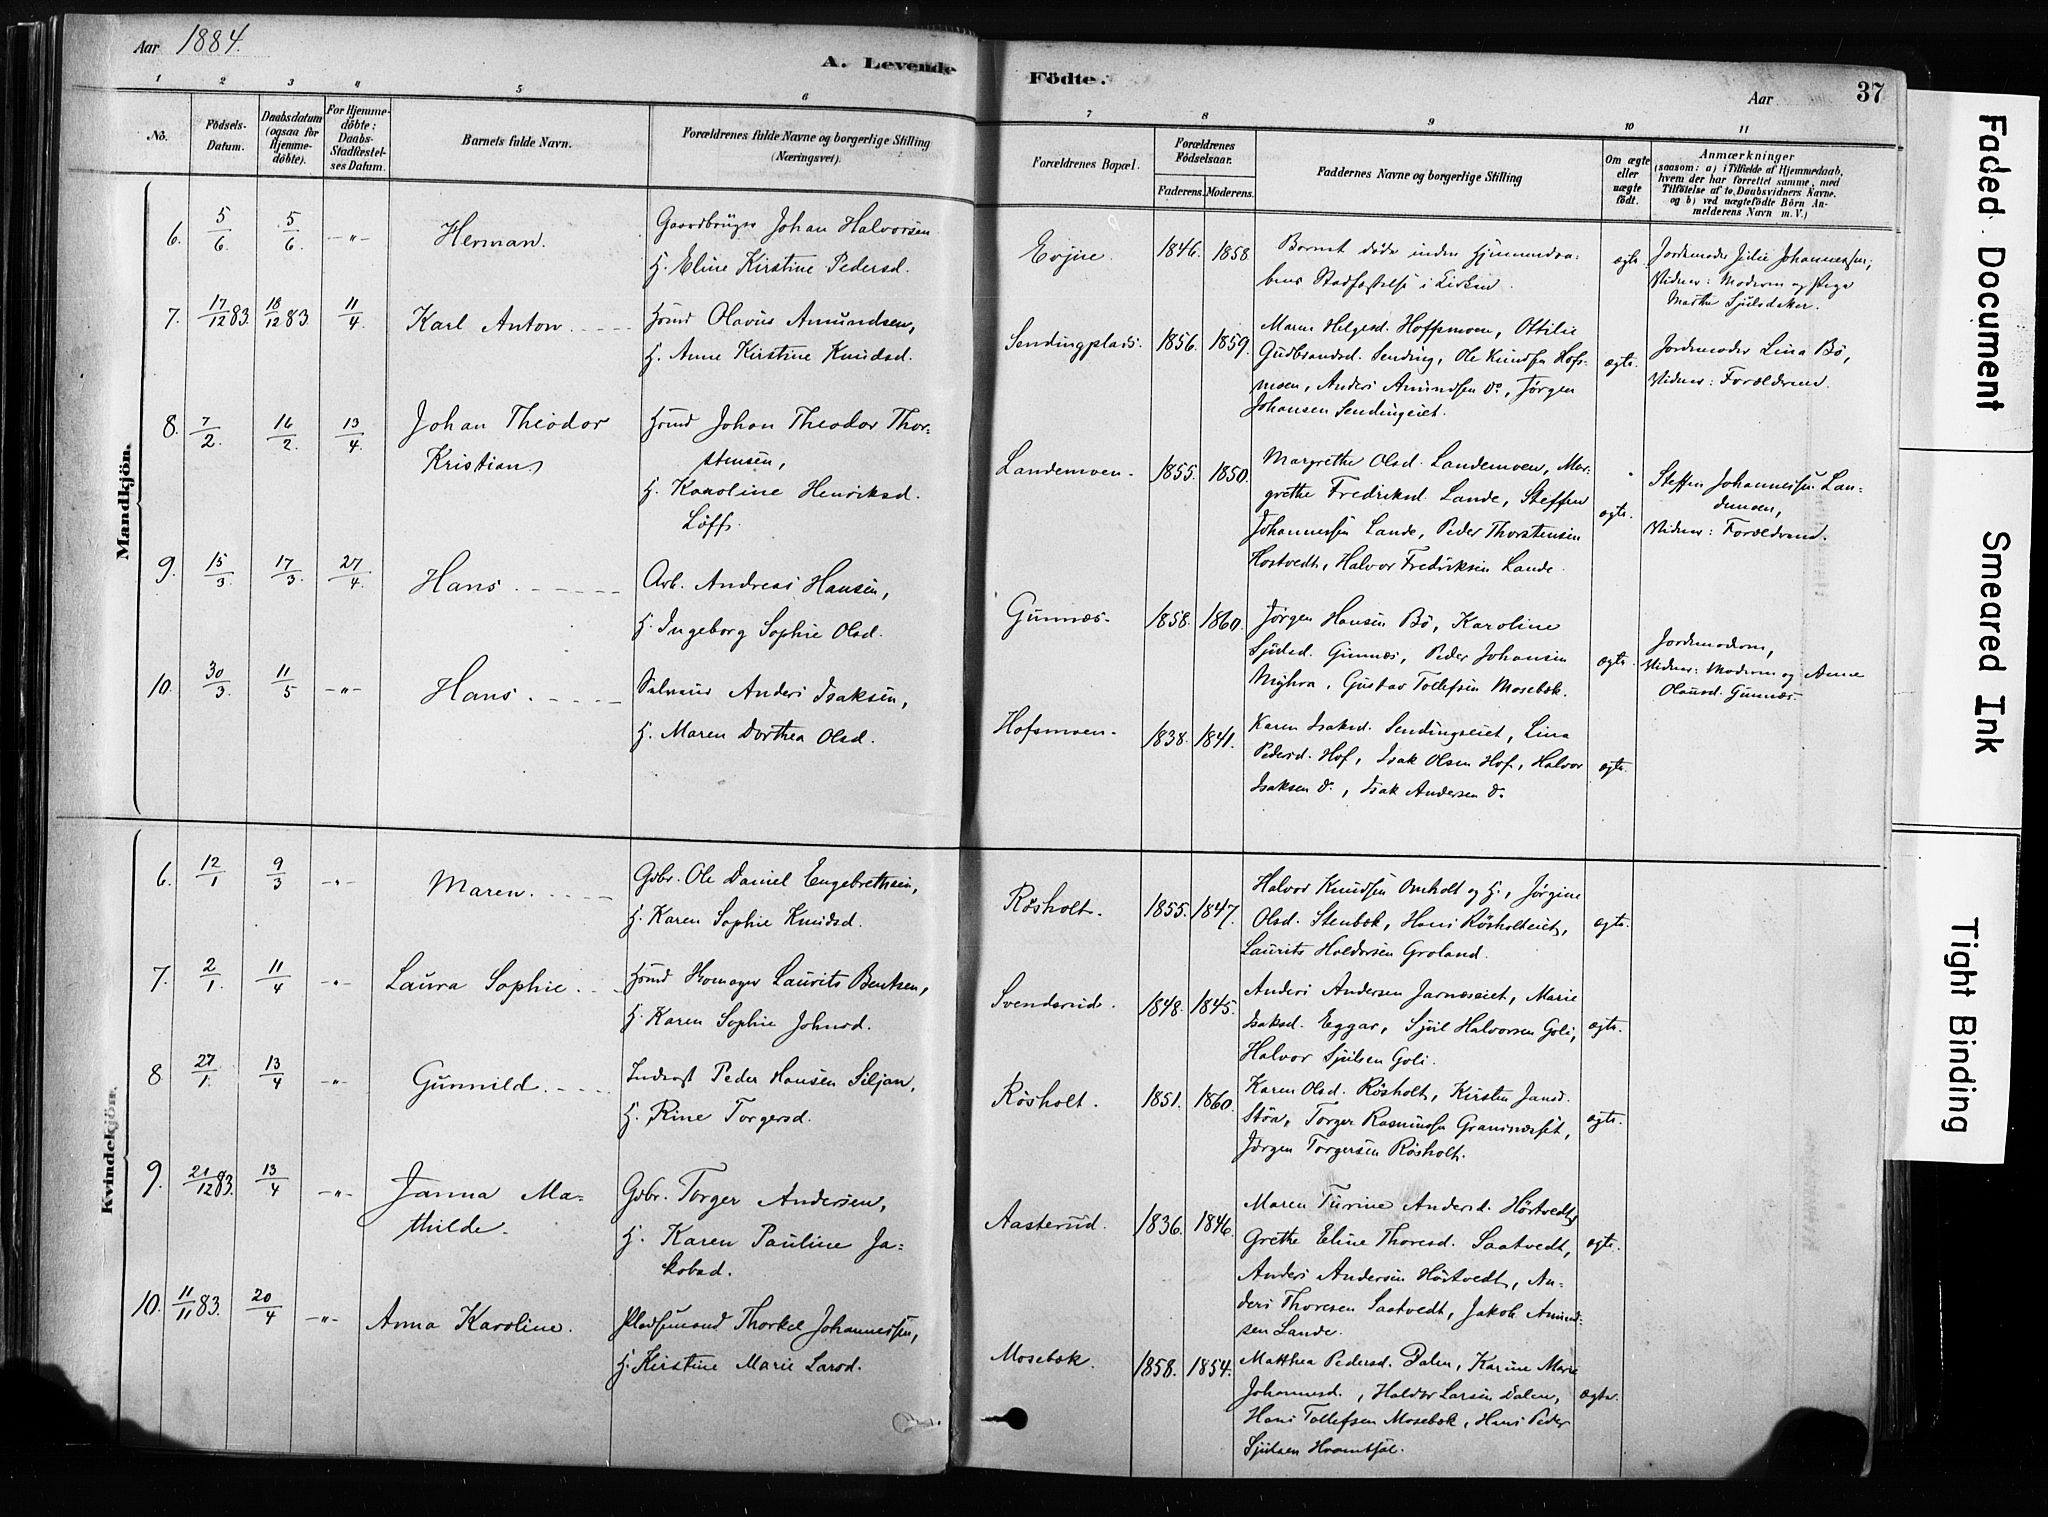 Aar 1884.
A. Levende
Födte.
Aar
37
1 2 3 " 5 6
7 8 9 10 11
No.
Födsels-
Datum.
Daabsdatum
(ogsaa for
Hjemme-
döbte).
For Hjemme-
döbte:
Daabs-
Stadfæstel-
ses Datum.
Barnets fulde Navn.
Forældrenes fulde Navne og borgerlige Stilling
(Næringsvei).
Forældrenes Bopæl.
Forældrenes
Födselsaar.
Faderens. Moderens.
Faddernes Navne og borgerlige Stilling
Om ægte
eller
uægte
födt.
Anmærkninger
(saasom: a) i Tilfælde af Hjemmedaab,
hvem der har forrettet samme, med
Tilföielse af to Daabsvidners Navne.
og b) ved uægtefödte Börn An-
melderens Navn m. V.)
Mandkjön.
6. 5/6 5/6 -"- Herman.
Gaardbruger Johan Halvorsen
H. Eline Kirstine Pedersd.
Evjue. 1846. 1858
Barnet døde inden Hjemmedaa-
bens Stadfæstelse i Kirken.
ægte
Jordemoder Julie Johannessen,
Vidner: Moderen og Pige
Marthe Sjulsdaker.
7. 17/12 83. 18/12 83 11/4 Karl Anton
Hmd Olavus Amundsen,
H. Anne Kirstine Knudsd.
Sendingplads. 1856. 1859.
Maren Helgesd. Hoffsmoen, Ottilie
Gudbrandsd. Sending, Ole Knudsen Hofs-
moen, Anders Amundsen do, Jørgen
Johansen Sendingeiet.
ægte.
Jordemoder Lina Bö,
Vidner: Forældrene.
8. 7/2 16/2 13/4 Johan Theodor
Kristian
Hmd Johan Theodor Thor-
stensen,
H. Karoline Henriksd.
Löff.
Landemoen- 1855. 1850.
Margrethe Olsd. Landemoen, Mar-
grethe Fredriksd. Lande, Steffen
Johannessen Lande, Peder Thorstensen
Hostvedt, Halvor Fredriksen Lande.
ægte.
Steffen Johannessen Lan-
demoen,
Vidner: Forældrene.
9. 15/3 17/3 27/4 Hans
Arb. Andreas Hansen,
H. Ingeborg Sophie Olsd.
Gunnæs- 1858. 1860.
Jörgen Hansen Bö, Karoline
Sjulsd. Gunnæs, Peder Johansen
Myhra, Gustav Tollefsen Mosebök.
ægte.
Jordemoderen,
Vidner: Moderen og Anne
Olausd. Gunnæs-
10. 30/3 11/5 -"- Hans
Selveier Anders Isaksen,
H. Maren Dorthea Olsd.
Hofsmoen- 1838. 1841.
Karen Isaksd. Sendingseiet, Lina
Pedersd. Hof, Isak Olsen Hof, Halvor
Isaksen do, Isak Andersen do
ægte.
Kvindekjön.
6. 12/1 9/3 -"- Maren.
Gdbr. Ole Daniel Engebrethsen,
H. Karen Sophie Knudsd.
Rösholt. 1855. 1847.
Halvor Knudsen Omholt og H., Jörgine
Olsd. Stenbök, Hans Rösholteiet,
Laurits Haldorsen Groland.
ægte.
7. 2/1 11/4 -"- Laura Sophie
Hmd Skomager Laurits Bentsen,
H. Karen Sophie Johnsd.
Svenderud. 1848. 1845.
Anders Andersen Jarnæseiet, Marie
Isaksd. Eggar, Sjul Halvorsen Goli,
Halvor Sjulsen Goli.
ægte.
8 27/1 13/4 -"- Gunnild
Inderst Peder Hansen Siljan,
H. Rine Torgersd.
Rösholt. 1851. 1860.
Karen Olsd. Rösholt, Kirsten Jansd.
Stöa, Torger Rasmussen Graninæsset,
Jörgen Torgersen Rösholt.
ægte.
9. 21/12 83. 13/4 -"- Janna Ma-
thilde.
Gdbr. Torger Andersen,
H. Karen Pauline Ja-
kobsd.
Aasterud. 1836. 1846.
Maren Turine Andersd. Hörtvedt,
Grethe Eline Thoresd. Saatvedt,
Anders Andersen Hörtvedt, An-
ders Thoresen Saatvedt, Jakob Amund-
sen Lande.
ægte.
10. 11/11 83. 20/4 -"- Anna Karoline.
Pladsemand Thorkel Johannessen,
H. Kirstine Marie Larsd.
Mosebök. 1858. 1854.
Matthea Pedersd. Dalen, Karine Marie
Johannesd., Haldor Larsen Dalen,
Hans Tollefsen Mosebök, Hans Peder
Sjulsen
ægte.
Faded Document
Smeared Ink
Tight Binding